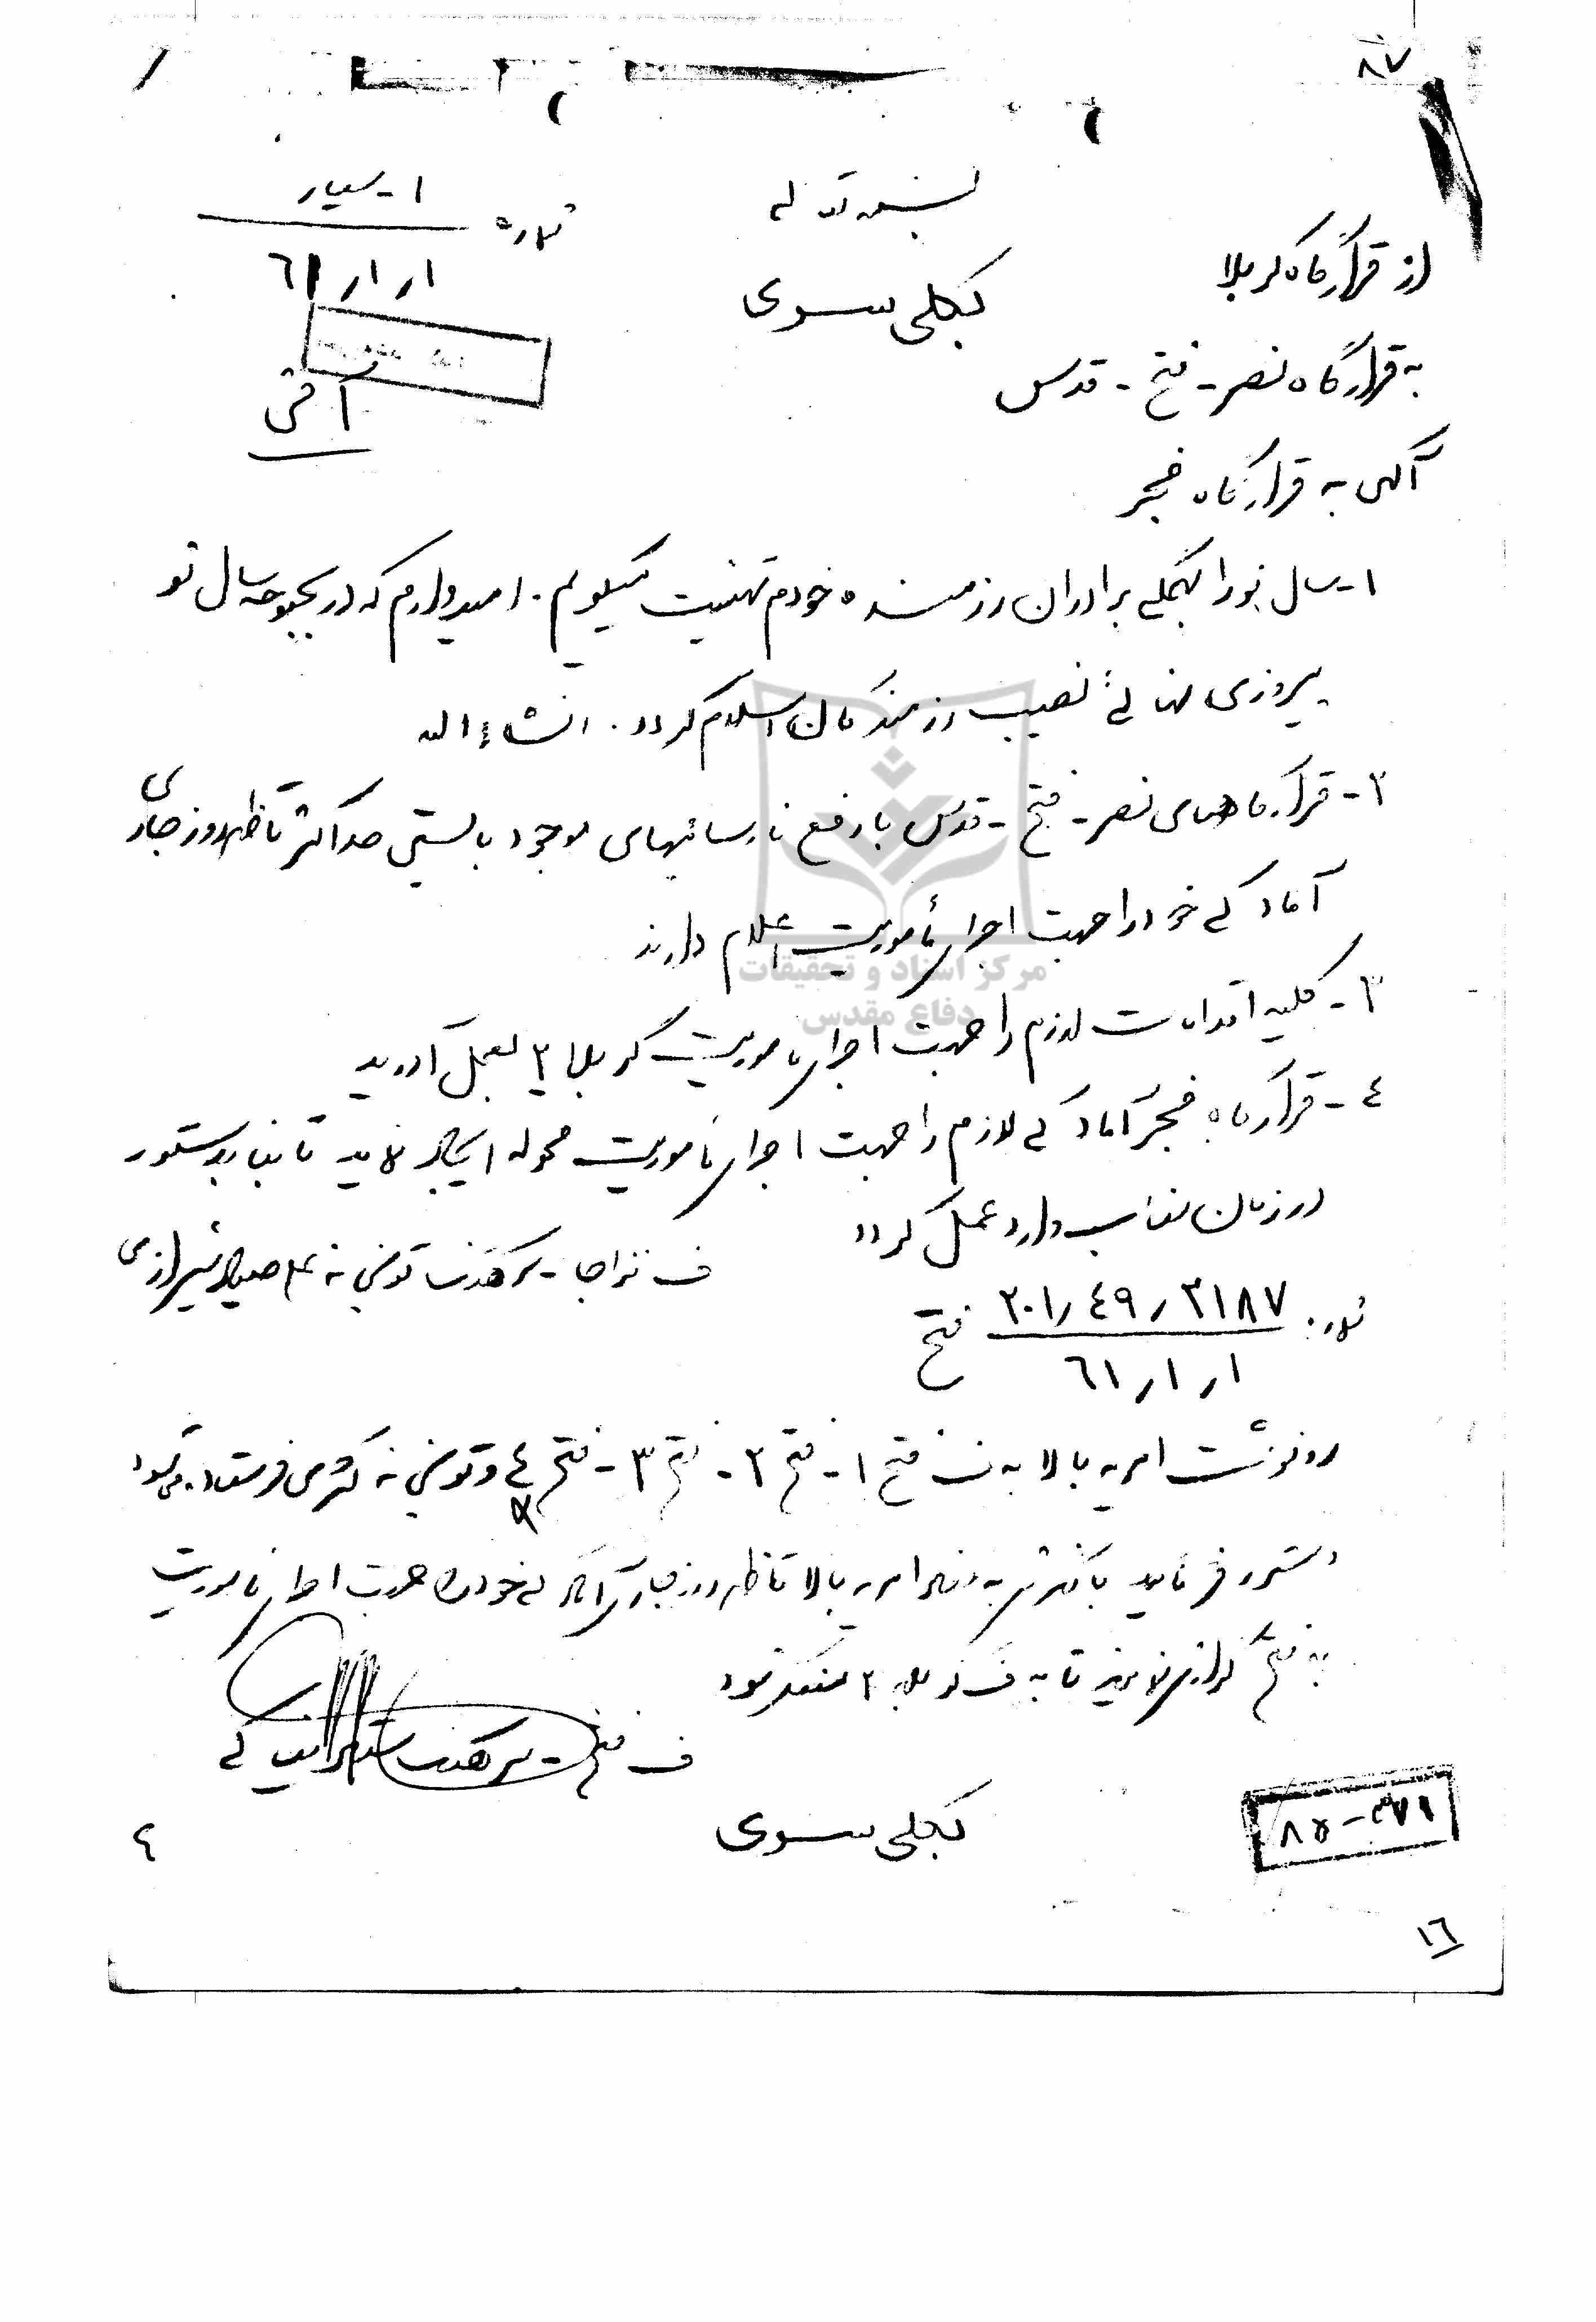 ۸۷
بسمه تعالی
شماره ۱- سیار
۱ر۱ر۶۱
آنی
از قرارگاه کربلا
بکلی سری
به قرارگاه نصر - فتح - قدس
آگهی به قرارگاه فجر
۱- سال نو را بکلیه برادران رزمنده خودم تهنیت میگویم. امیدوارم که در بحبوحه سال نو
پیروزی نهائی نصیب رزمندگان اسلام گردد. انشاءاله
۲- قرارگاههای نصر - فتح - قدس با رفع نارسائیهای موجود بایستی حداکثر تا ظهر روز جاری
آمادگی خود را جهت اجرای مأموریت اعلام دارند
۳- کلیه اقدامات لازم را جهت اجرای ماموریت کربلا ۲ بعمل آورید
۴- قرارگاه فجر آمادگی لازم را جهت اجرای ماموریت محوله ایجاد نماید تا بنا بدستور
در زمان مناسب وارد عمل گردد
ف نزاجا - سرهنگ توپخانه علی صیاد شیرازی
شماره ۲۰۱ر۴۹ر۳۱۸۷ فتح
۱ر۱ر۶۱
رونوشت امریه بالا به ف فتح ۱ - فتح ۲ - فتح ۳ - فتح ۴ و توپخانه لشگری فرستاده میشود
دستور فرمائید با توجه به مفاد امریه بالا تا ظهر روز جاری آمادگی خود را جهت اجرای ماموریت
به فتح گزارش نمایند تا به ف کربلا ۲ منعکس شود
ف فتح - سرهنگ
بکلی سری
۴
۸۵-۳۷۹
۱۶
مرکز اسناد و تحقیقات
دفاع مقدس